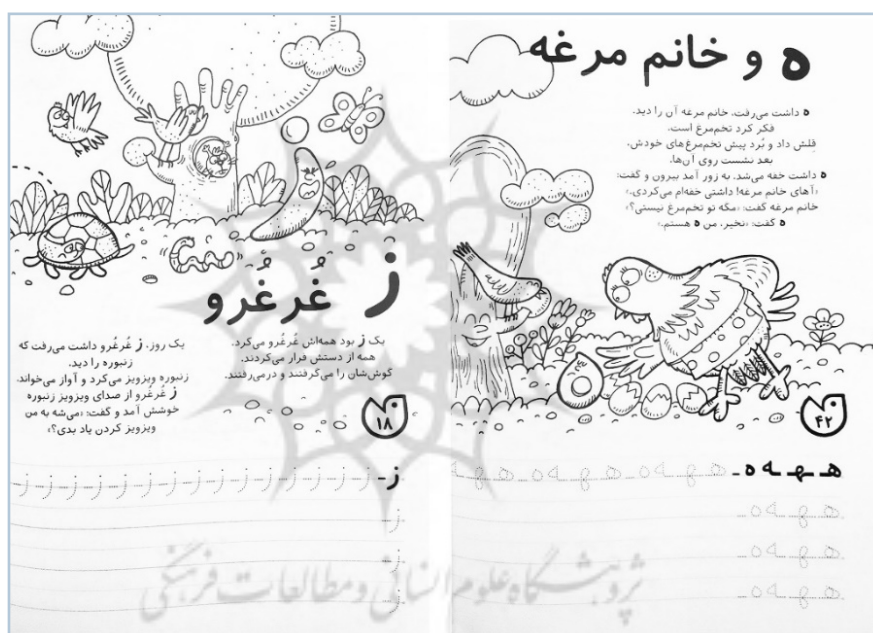 ه و خانم مرغه
ه داشت می‌رفت، خانم مرغه آن را دید.
فکر کرد تخم‌مرغ است،
قِلش داد و بُرد پیش تخم‌مرغ‌های خودش،
بعد نشست روی آن‌ها.
ه داشت خفه می‌شد، به زور آمد بیرون و گفت:
«آهای خانم مرغه! داشتی خفه‌ام می‌کردی.»
خانم مرغه گفت: «مگه تو تخم‌مرغ نیستی؟»
ه گفت: «نخیر، من ه هستم.»
۴۲
هـ ـهـ ـه ه ـ هـ ـهـ ـه ه ـ هـ ـهـ ـه ه ـ هـ ـهـ
هـ ـهـ ـه ه ـ
هـ ـهـ ـه ه ـ
هـ ـهـ ـه ه ـ
ز غُرغُرو
یک ز بود همه‌اش غُرغُرو می‌کرد.
همه از دستش فرار می‌کردند.
گوش‌شان را می‌گرفتند و درمی‌رفتند.
یک روز، ز غُرغُرو داشت می‌رفت که
زنبوره را دید.
زنبوره ویزویز می‌کرد و آواز می‌خواند.
ز غُرغُرو از صدای ویزویز زنبوره
خوشش آمد و گفت: «می‌شه به من
ویزویز کردن یاد بدی؟»
۱۸
ز- ز- ز- ز- ز- ز- ز- ز- ز- ز- ز- ز- ز- ز- ز-
ز-
ز-
ز-
پژوهشگاه علوم انسانی و مطالعات فرهنگی